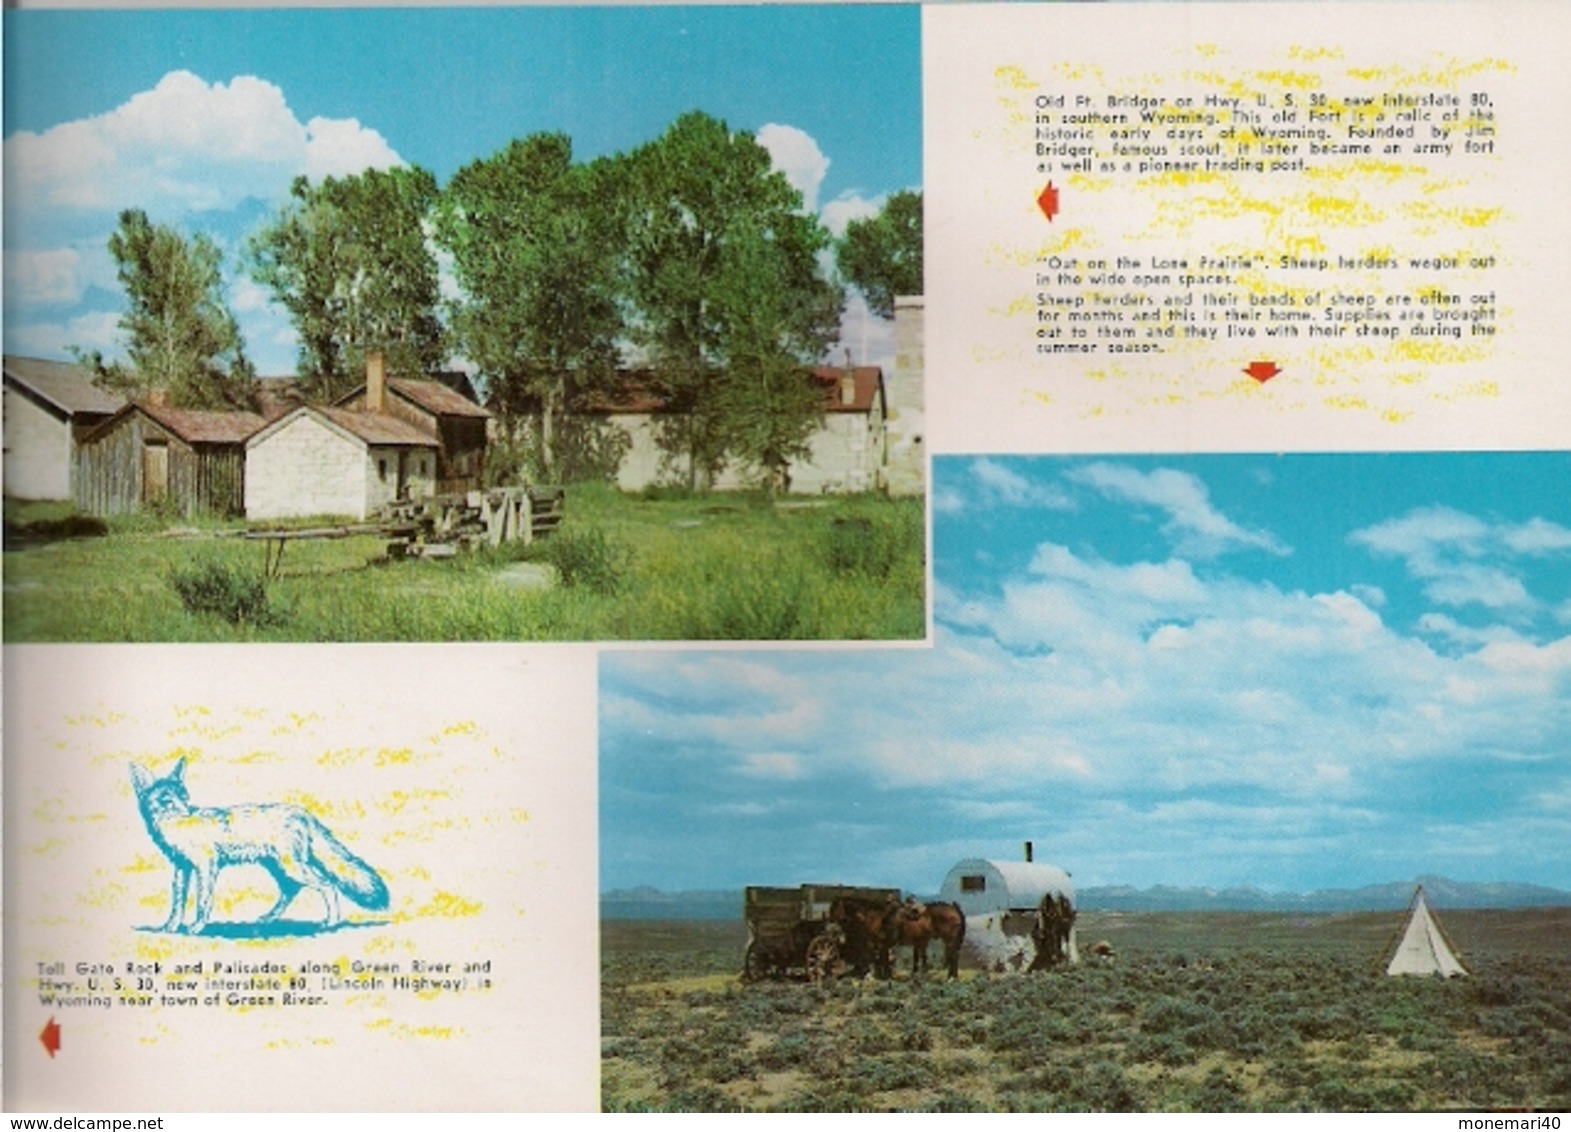 Old Ft. Bridger on Hwy. U. S. 30, new interstate 80,
in southern Wyoming. This old Fort is a relic of the
historic early days of Wyoming. Founded by Jim
Bridger, famous scout, it later became an army fort
as well as a pioneer trading post.
"Out on the Lone Prairie". Sheep herders wagon out
in the wide open spaces.
Sheep herders and their bands of sheep are often out
for months and this is their home. Supplies are brought
out to them and they live with their sheep during the
summer season.
Toll Gate Rock and Palisades along Green River and
Hwy. U. S. 30, new interstate 80, (Lincoln Highway) in
Wyoming near town of Green River.
delcampe.net
monemari40